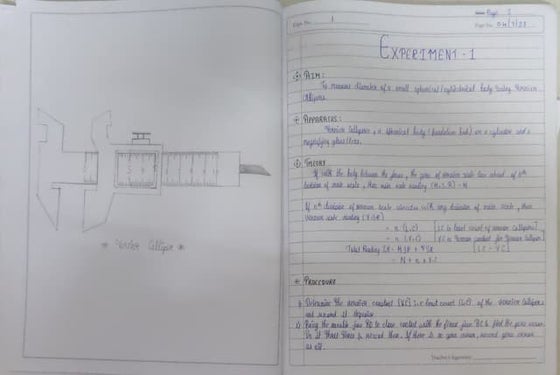 Expt. No. 1
* Vernier Callipers *
Page 1
Page No. 04/7/23
EXPERIMENT - 1
AIM:
To measure diameter of a small spherical/cylindrical body using Vernier
Callipers.
APPARATUS:
Vernier Callipers, a spherical body (pendulum bob) or a cylinder and a
magnifying glass/lens.
THEORY
If with the body between the jaws, the zero of vernier scale lies ahead of Nth
division of main scale, then main scale reading (M.S.R) = N
If nth division of vernier scale coincides with any division of main scale, then
Vernier scale reading (V.S.R)
= n (L.C) [LC is least count of vernier callipers]
= n (V.C) [V.C is vernier constant for Vernier Callipers]
Total Reading TR = MSR + VSR [LC = VC]
= N + n x V.C
PROCEDURE
1) Determine the vernier constant (VC) i.e. least count (LC) of the vernier callipers
and record it stepwise
2) Bring the movable jaw BD in close contact with the fixed jaw AC & find the zero error.
Do it three times & record them. If there is no zero error, record zero error
as nil.
Teacher's Signature: